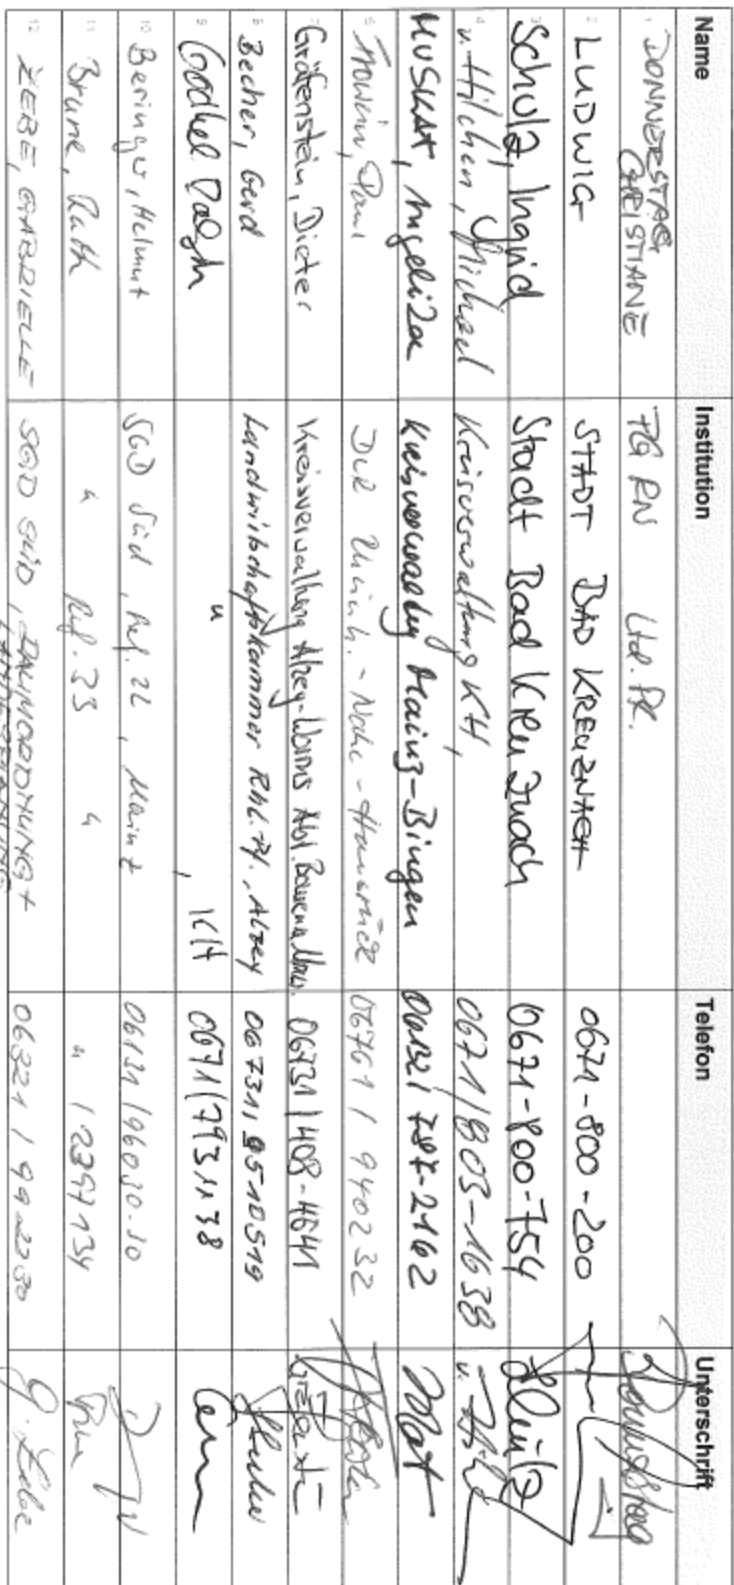 Name Institution Telefon Unterschrift
1 DONNERSTAG CHRISTIANE PG RN Ltd. Pl.
2 LUDWIG STADT BAD KREUZNACH 0671-800-200
3 Scholz, Ingrid Stadt Bad Kreuznach 0671-800-754
4 v. Hilchen, Michael Kreisverwaltung KH, 0671/803-1638
5 MUSKAT, Angelika Kreisverwaltung Mainz-Bingen 06132/787-2162
6 Paul DLR Rheinh. - Nahe - Hunsrück 06761 / 940232
7 Gräfenstein, Dieter Kreisverwaltung Alzey-Worms Abt. 06731/408-4641
8 Becher, Gerd Landwirtschaftskammer Rhl.-Pf., Alzey 06731, 9510519
9 Ralph " , KH 0671/793 1138
10 Beringer, Helmut SGD Süd, Ref. 22, Mainz 06131/96030-30
11 Brune, Ruth " Ref. 33 " " / 2397134
12 ZEBE, GABRIELLE SGD SÜD, RAUMORDNUNG + LANDESPLANUNG 06321 / 992230 G. Zebe